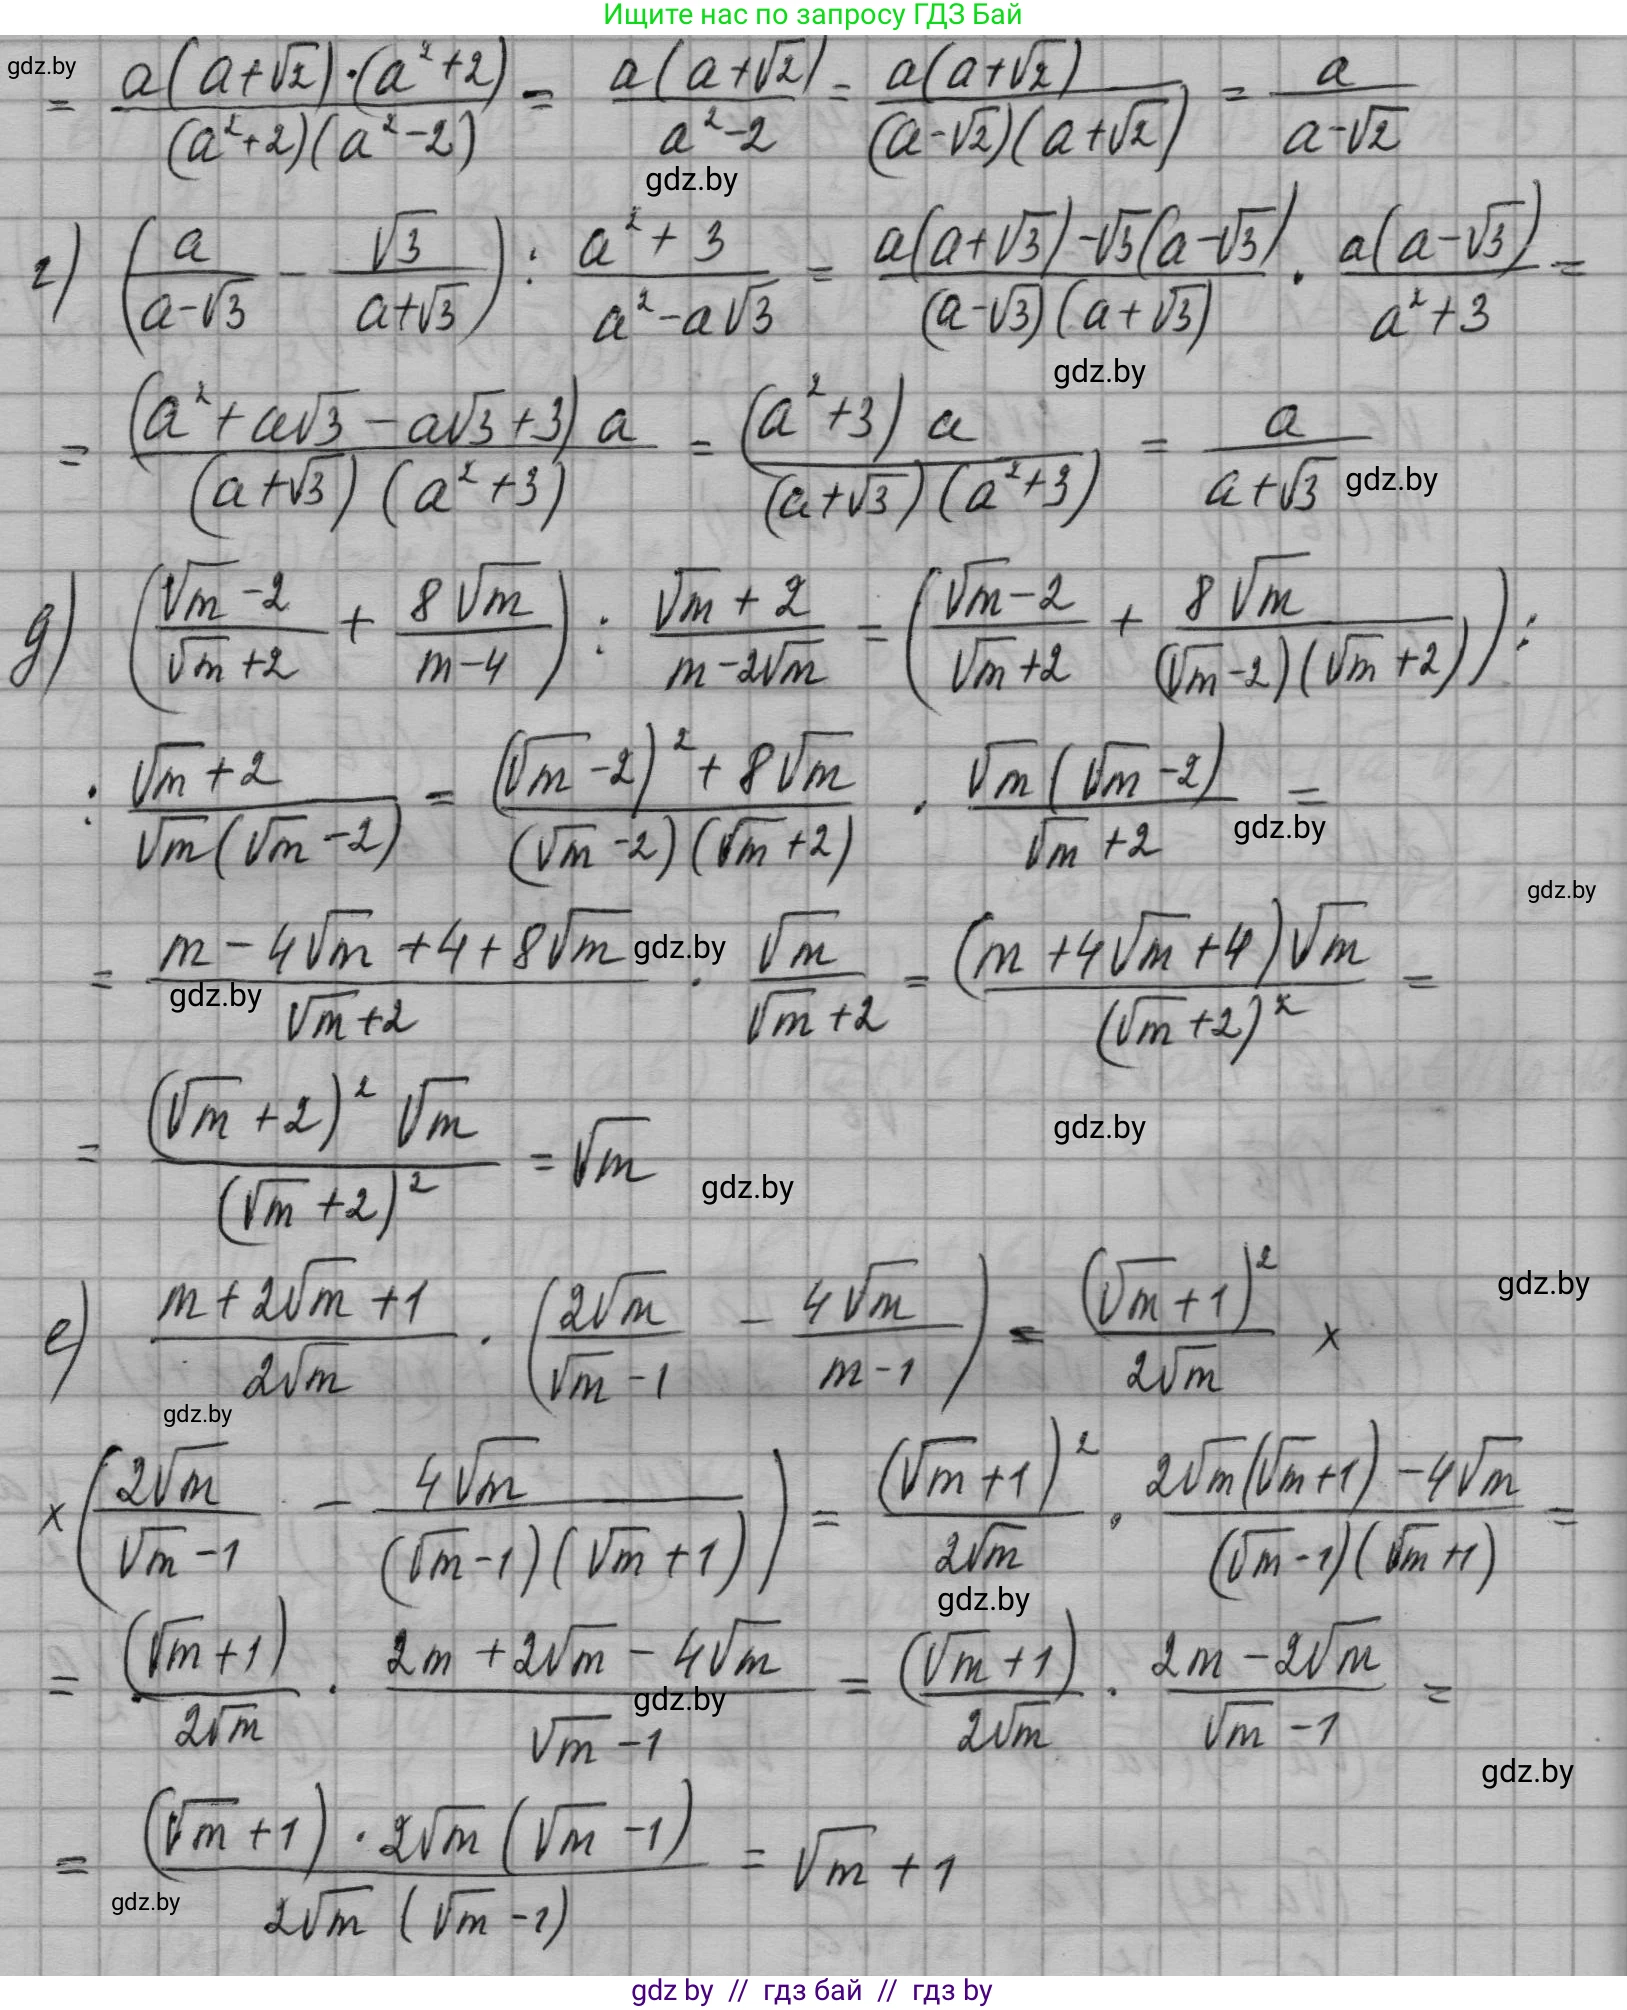 Ищите нас по запросу ГДЗ Бай
gdz.by
= a(a+√2)·(a²+2) / (a²+2)(a²-2) = a(a+√2) / a²-2 = a(a+√2) / (a-√2)(a+√2) = a / a-√2
gdz.by
г) (a / a-√3 - √3 / a+√3) : a²+3 / a²-a√3 = a(a+√3)-√3(a-√3) / (a-√3)(a+√3) · a(a-√3) / a²+3 =
gdz.by
= (a²+a√3-a√3+3)a / (a+√3)(a²+3) = (a²+3)a / (a+√3)(a²+3) = a / a+√3
gdz.by
д) (√m-2 / √m+2 + 8√m / m-4) : √m+2 / m-2√m = (√m-2 / √m+2 + 8√m / (√m-2)(√m+2)) :
: √m+2 / √m(√m-2) = (√m-2)²+8√m / (√m-2)(√m+2) · √m(√m-2) / √m+2 =
gdz.by
gdz.by
= m-4√m+4+8√m / √m+2 · √m / √m+2 = (m+4√m+4)√m / (√m+2)² =
gdz.by
gdz.by
= (√m+2)²√m / (√m+2)² = √m
gdz.by
gdz.by
е) m+2√m+1 / 2√m · (2√m / √m-1 - 4√m / m-1) = (√m+1)² / 2√m ×
gdz.by
gdz.by
× (2√m / √m-1 - 4√m / (√m-1)(√m+1)) = (√m+1)² / 2√m · 2√m(√m+1)-4√m / (√m-1)(√m+1) =
gdz.by
= (√m+1) / 2√m · 2m+2√m-4√m / √m-1 = (√m+1) / 2√m · 2m-2√m / √m-1 =
gdz.by
gdz.by
= (√m+1)·2√m(√m-1) / 2√m(√m-1) = √m+1
gdz.by
gdz by // гдз бай // гдз by